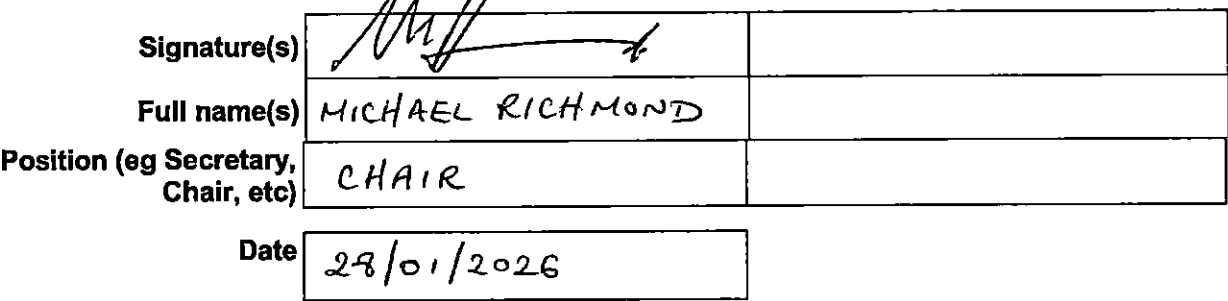 Signature(s)
Full name(s) MICHAEL RICHMOND
Position (eg Secretary, CHAIR
Chair, etc)
Date 28/01/2026